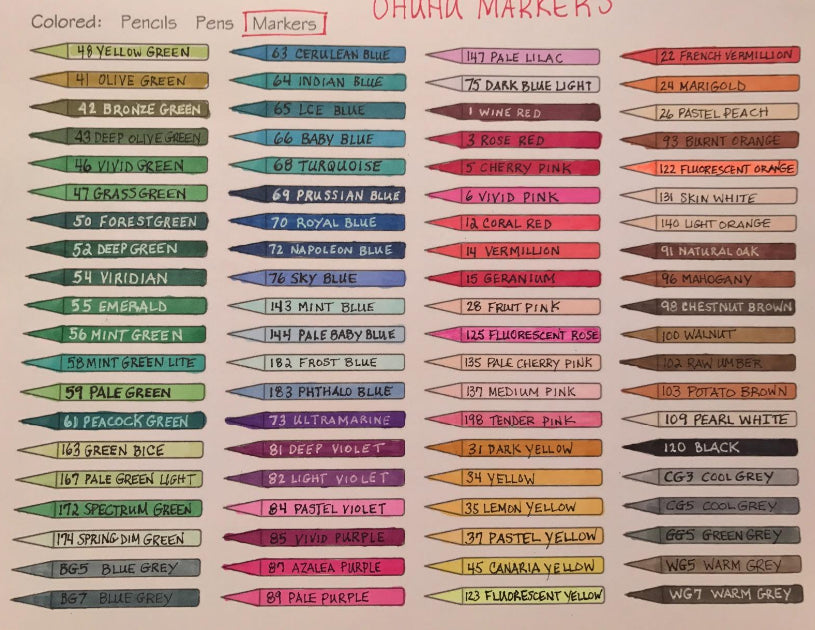 OHUHU MARKERS
Colored: Pencils Pens Markers
48 YELLOW GREEN
41 OLIVE GREEN
42 BRONZE GREEN
43 DEEP OLIVE GREEN
46 VIVID GREEN
47 GRASS GREEN
50 FOREST GREEN
52 DEEP GREEN
54 VIRIDIAN
55 EMERALD
56 MINT GREEN
58 MINT GREEN LITE
59 PALE GREEN
61 PEACOCK GREEN
163 GREEN BICE
167 PALE GREEN LIGHT
172 SPECTRUM GREEN
174 SPRING DIM GREEN
BG5 BLUE GREY
BG7 BLUE GREY
63 CERULEAN BLUE
64 INDIAN BLUE
65 ICE BLUE
66 BABY BLUE
68 TURQUOISE
69 PRUSSIAN BLUE
70 ROYAL BLUE
72 NAPOLEON BLUE
76 SKY BLUE
143 MINT BLUE
144 PALE BABY BLUE
182 FROST BLUE
183 PHTHALO BLUE
73 ULTRAMARINE
81 DEEP VIOLET
82 LIGHT VIOLET
84 PASTEL VIOLET
85 VIVID PURPLE
87 AZALEA PURPLE
89 PALE PURPLE
147 PALE LILAC
75 DARK BLUE LIGHT
1 WINE RED
3 ROSE RED
5 CHERRY PINK
6 VIVID PINK
12 CORAL RED
14 VERMILLION
15 GERANIUM
28 FRUIT PINK
125 FLUORESCENT ROSE
135 PALE CHERRY PINK
137 MEDIUM PINK
198 TENDER PINK
31 DARK YELLOW
34 YELLOW
35 LEMON YELLOW
37 PASTEL YELLOW
45 CANARIA YELLOW
123 FLUORESCENT YELLOW
22 FRENCH VERMILLION
24 MARIGOLD
26 PASTEL PEACH
93 BURNT ORANGE
122 FLUORESCENT ORANGE
131 SKIN WHITE
140 LIGHT ORANGE
91 NATURAL OAK
96 MAHOGANY
98 CHESTNUT BROWN
100 WALNUT
102 RAW UMBER
103 POTATO BROWN
109 PEARL WHITE
120 BLACK
CG3 COOL GREY
CG5 COOL GREY
GG5 GREEN GREY
WG5 WARM GREY
WG7 WARM GREY